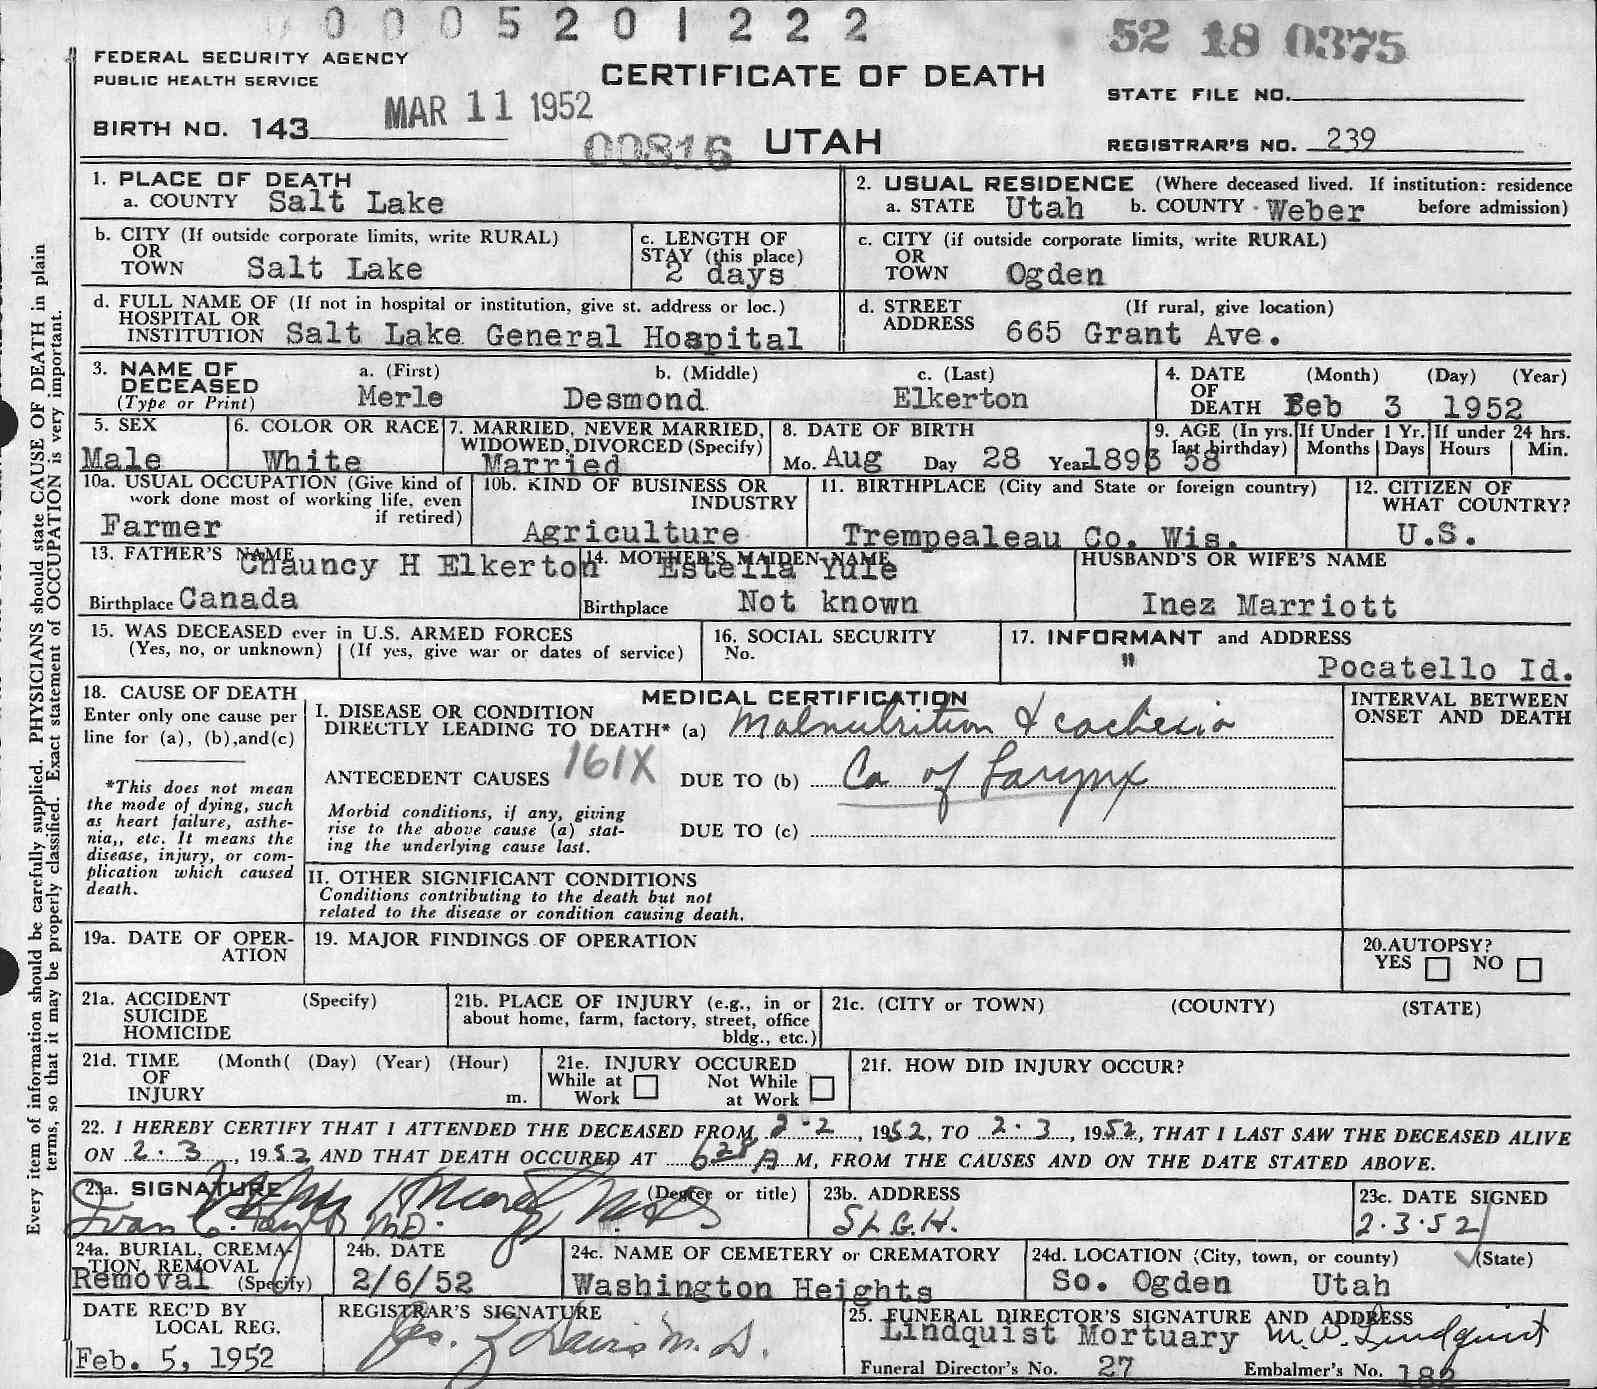 0005201222
52 18 0375
FEDERAL SECURITY AGENCY
PUBLIC HEALTH SERVICE
CERTIFICATE OF DEATH
STATE FILE NO.
MAR 11 1952
BIRTH NO. 143
00816
UTAH
REGISTRAR'S NO. 239
1. PLACE OF DEATH
a. COUNTY Salt Lake
2. USUAL RESIDENCE (Where deceased lived. If institution: residence before admission)
a. STATE Utah b. COUNTY Weber
b. CITY (If outside corporate limits, write RURAL)
OR
TOWN Salt Lake
c. LENGTH OF
STAY (this place)
2 days
c. CITY (if outside corporate limits, write RURAL)
OR
TOWN Ogden
d. FULL NAME OF (If not in hospital or institution, give st. address or loc.)
HOSPITAL OR
INSTITUTION Salt Lake General Hospital
d. STREET (If rural, give location)
ADDRESS 665 Grant Ave.
3. NAME OF DECEASED
(Type or Print)
a. (First) b. (Middle) c. (Last)
Merle Desmond Elkerton
4. DATE OF DEATH (Month) (Day) (Year)
Feb 3 1952
5. SEX
Male
6. COLOR OR RACE
White
7. MARRIED, NEVER MARRIED,
WIDOWED, DIVORCED (Specify)
Married
8. DATE OF BIRTH
Mo. Aug Day 28 Year 1893
9. AGE (In yrs. last birthday) 58
If Under 1 Yr. Months Days
If under 24 hrs. Hours Min.
10a. USUAL OCCUPATION (Give kind of
work done most of working life, even
if retired)
Farmer
10b. KIND OF BUSINESS OR
INDUSTRY
Agriculture
11. BIRTHPLACE (City and State or foreign country)
Trempealeau Co. Wis.
12. CITIZEN OF
WHAT COUNTRY?
U.S.
13. FATHER'S NAME Chauncy H Elkerton
Birthplace Canada
14. MOTHER'S MAIDEN NAME Estella Yule
Birthplace Not known
HUSBAND'S OR WIFE'S NAME
Inez Marriott
15. WAS DECEASED ever in U.S. ARMED FORCES
(Yes, no, or unknown) (If yes, give war or dates of service)
16. SOCIAL SECURITY
No.
17. INFORMANT and ADDRESS
" Pocatello Id.
18. CAUSE OF DEATH
Enter only one cause per
line for (a), (b),and(c)
*This does not mean
the mode of dying, such
as heart failure, asthe-
nia,, etc. It means the
disease, injury, or com-
plication which caused
death.
MEDICAL CERTIFICATION
I. DISEASE OR CONDITION
DIRECTLY LEADING TO DEATH* (a) Malnutrition & cachexia
ANTECEDENT CAUSES 161X DUE TO (b) Ca of Larynx
Morbid conditions, if any, giving
rise to the above cause (a) stat-
ing the underlying cause last.
DUE TO (c)
INTERVAL BETWEEN
ONSET AND DEATH
II. OTHER SIGNIFICANT CONDITIONS
Conditions contributing to the death but not
related to the disease or condition causing death.
19a. DATE OF OPER-
ATION
19. MAJOR FINDINGS OF OPERATION
20. AUTOPSY?
YES NO
21a. ACCIDENT (Specify)
SUICIDE
HOMICIDE
21b. PLACE OF INJURY (e.g., in or
about home, farm, factory, street, office
bldg., etc.)
21c. (CITY or TOWN) (COUNTY) (STATE)
21d. TIME (Month( (Day) (Year) (Hour)
OF
INJURY m.
21e. INJURY OCCURED
While at Work Not While at Work
21f. HOW DID INJURY OCCUR?
22. I HEREBY CERTIFY THAT I ATTENDED THE DECEASED FROM 2-2, 1952, TO 2.3, 1952, THAT I LAST SAW THE DECEASED ALIVE
ON 2.3, 1952 AND THAT DEATH OCCURED AT 628 A M, FROM THE CAUSES AND ON THE DATE STATED ABOVE.
23a. SIGNATURE (Degree or title)
Ivan C. Taylor M.D.
23b. ADDRESS
S L G.H.
23c. DATE SIGNED
2.3.52
24a. BURIAL, CREMA-
TION, REMOVAL
Removal (Specify)
24b. DATE
2/6/52
24c. NAME OF CEMETERY or CREMATORY
Washington Heights
24d. LOCATION (City, town, or county) (State)
So. Ogden Utah
DATE REC'D BY
LOCAL REG.
Feb. 5, 1952
REGISTRAR'S SIGNATURE
Davis M.D.
25. FUNERAL DIRECTOR'S SIGNATURE AND ADDRESS
Lindquist Mortuary M.W. Lindquist
Funeral Director's No. 27 Embalmer's No. 182
Every item of information should be carefully supplied. PHYSICIANS should state CAUSE OF DEATH in plain
terms, so that it may be properly classified. Exact statement of OCCUPATION is very important.